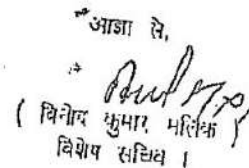 आज्ञा से,
( विनोद कुमार मलिक )
विशेष सचिव ।